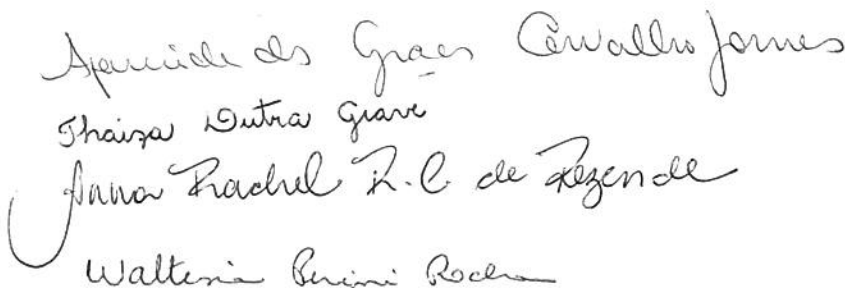 Aparecida das Graças Carvalho Gomes
Thaiza Dutra Grave
Anna Rachel R. C. de Rezende
Waltesia Perini Rocha